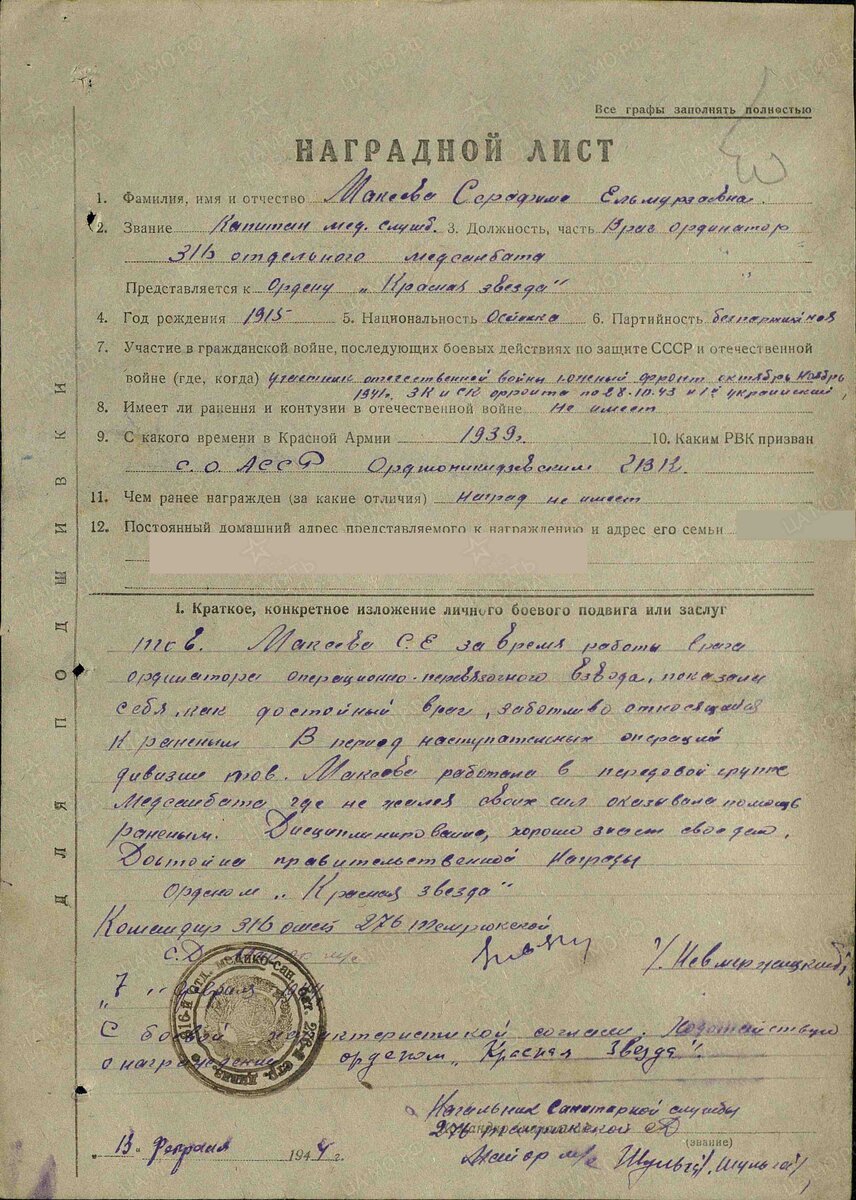 Все графы заполнять полностью
НАГРАДНОЙ ЛИСТ
1. Фамилия, имя и отчество Макеева Серафима Ельмурзаевна.
2. Звание Капитан мед. служб. 3. Должность, часть Врач ординатор
316 отдельного медсанбата
Представляется к Ордену „Красная звезда"
4. Год рождения 1915 5. Национальность Осетинка 6. Партийность беспартийная
7. Участие в гражданской войне, последующих боевых действиях по защите СССР и отечественной
войне (где, когда) участник отечественной войны южный фронт октябрь ноябрь
1941г. ЗК и СК фронта по 28.10.43 и 1й украинский
8. Имеет ли ранения и контузии в отечественной войне Не имеет
9. С какого времени в Красной Армии 1939г. 10. Каким РВК призван
С.О. АССР Орджоникидзевским ГВК.
11. Чем ранее награжден (за какие отличия) наград не имеет
12. Постоянный домашний адрес представляемого к награждению и адрес его семьи
ДЛЯ ПОДШИВКИ
I. Краткое, конкретное изложение личного боевого подвига или заслуг
тов. Макеева С.Е за время работы врача
ординатора операционно-перевязочного взвода, показала
себя, как достойный врач, заботливо относящийся
к раненым В период наступательных операций
дивизии тов. Макеева работала в передовой группе
медсанбата где не жалея своих сил оказывала помощь
раненым. Дисциплинирована, хорошо знает свое дело.
Достойна правительственной награды
Орденом „Красная звезда"
Командир 316 омсб 276 Темрюкской
С.Д. м/с
/Невмержицкий/
„7" февраля 1944
316-й отд. медико-сан. бат. 276-й стр. дивиз.
С боевой характеристикой согласен. Ходатайствую
о награждении орденом „Красная Звезда".
Начальник Санитарной службы
276 темрюкской СД
(звание)
Майор м/с Шульга /Шульга/
13 февраля 1944 г.